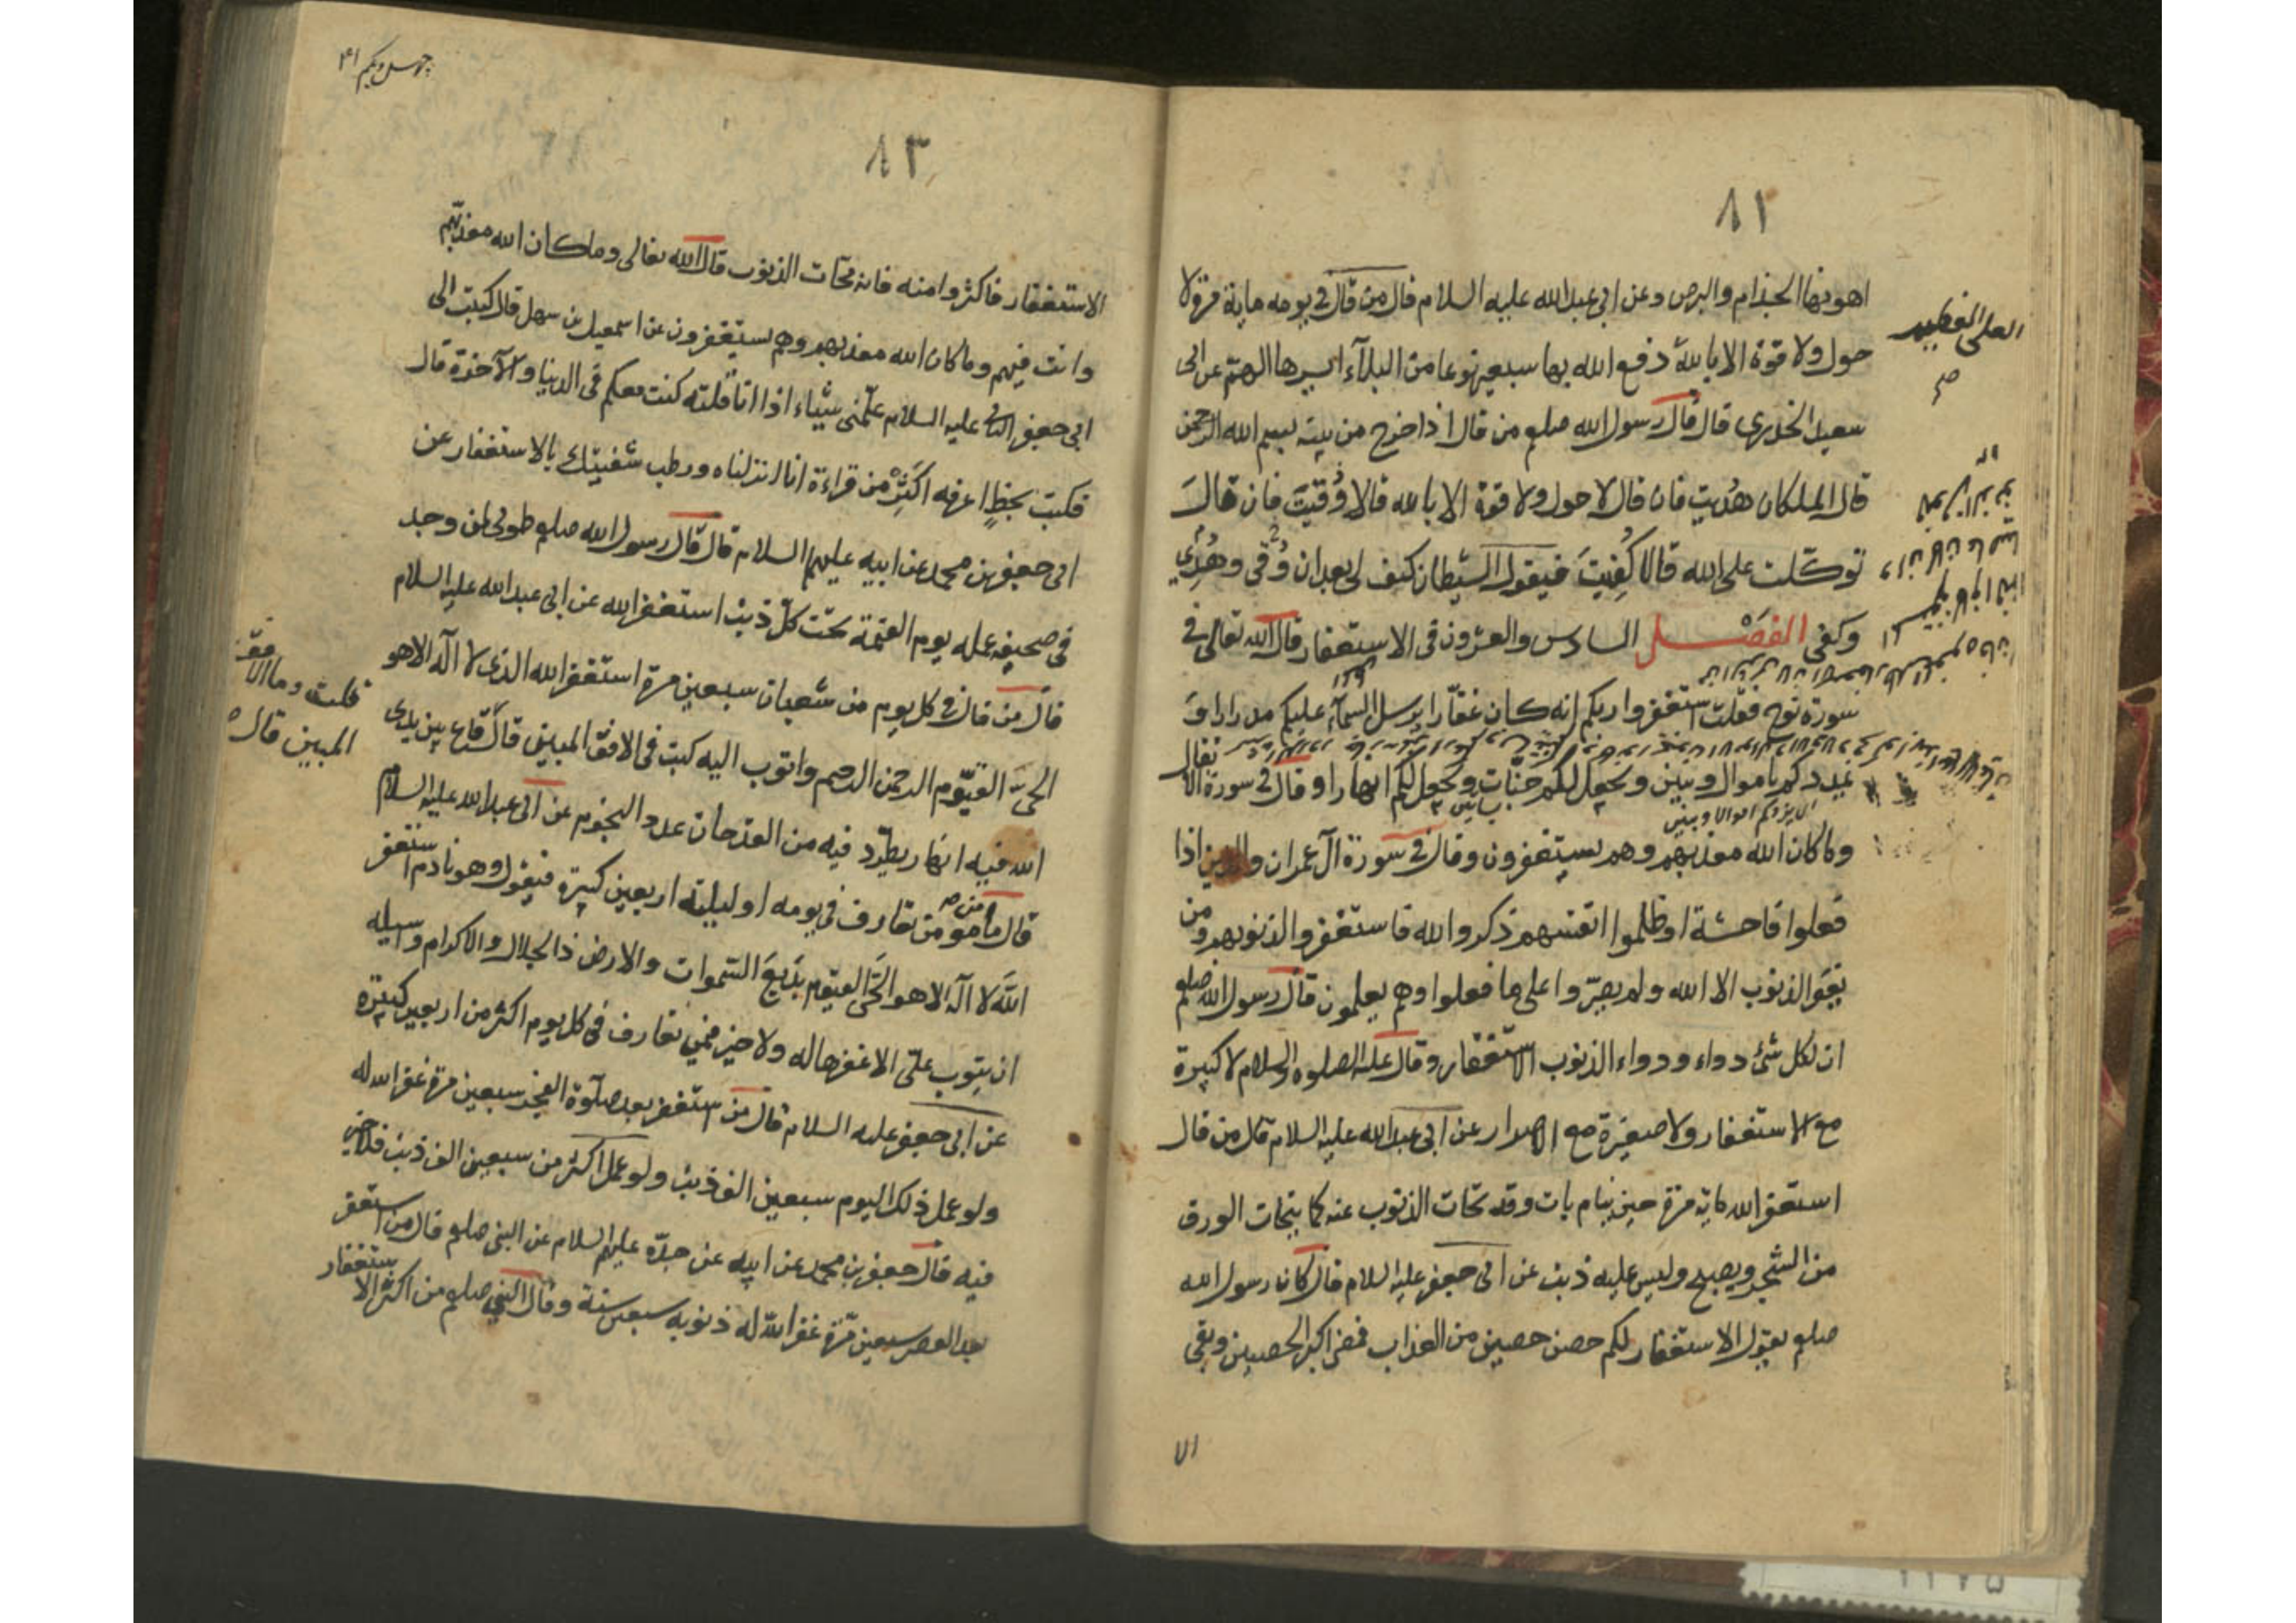 ٨١
اهونها الجذام والبرص وعن ابي عبد الله عليه السلام قال من قال في يومه ماية مرة لا
حول ولا قوة الا بالله دفع الله بها سبعين نوعا من البلآء ايسرها الهم عن ابى
العلى العظيم
صح
سعيد الخدرى قال قال رسول الله صلعم من قال اذا خرج من بيته بسم الله الرحمن
قال الملكان هُديت فان قال لا حول ولا قوة الا بالله قالا وُقيتَ فان قالَ
توكّلت على الله قالا كُفيتَ فيقول الشيطان كيف لى بعبد ان وُقى وهُدى
وكفى الفصل السادس والعشرون فى الاستغفار قال الله تعالى فى
سورة نوح فقلت استغفروا ربكم انه كان غفّارا يرسل السمآء عليكم مدرارا و
يمددكم باموال وبنين ويجعل لكم جنّات ويجعل لكم انهارا وقال في سورة الا
نفال
وما كان الله معذبهم وهم يستغفرون وقال في سورة آل عمران والذين اذا
فعلوا فاحشة او ظلموا انفسهم ذكروا الله فاستغفروا لذنوبهم ومن
يغفر الذنوب الا الله ولم يصرّوا على ما فعلوا وهم يعلمون قال رسول الله صلعم
ان لكل شئ دواء ودواء الذنوب الاستغفار وقال عليه الصلوة والسلام لا كبيرة
مع الاستغفار ولا صغيرة مع الاصرار عن ابى عبد الله عليه السلام قال من قال
استغفر الله ماية مرة حين ينام بات وقد تحات الذنوب عنه كما يتحات الورق
من الشجر ويصبح وليس عليه ذنب عن ابى جعفر عليه السلام قال كان رسول الله
صلعم يقول الاستغفار لكم حصن حصين من العذاب فمضى اكبر الحصنين وبقى
الا
چهل ويكم ٤١
٨٣
الاستغفار فاكثروا منه فانه محّات الذنوب قال الله تعالى وما كان الله معذبهم
وانت فيهم وما كان الله معذبهم وهم يستغفرون عن اسمعيل بن سهل قال كتبت الى
ابى جعفر الثانى عليه السلام علّمنى شيئاء اذا انا قلته كنت معكم فى الدنيا والآخرة قال
فكتب بخطٍ اعرفه اكثِرْ من قراءة انا انزلناه ورطب شفتيك بالاستغفار عن
ابى جعفر بن محمد عن ابيه عليهما السلام قال قال رسول الله صلعم طوبى لمن وجد
فى صحيفة عمله يوم القيمة تحت كلّ ذنب استغفر الله عن ابى عبد الله عليه السلام
قال من قال في كل يوم من شعبان سبعين مرة استغفر الله الذى لا اله الا هو
الحىّ القيّوم الرحمن الرحيم واتوب اليه كتب فى الافق المبين قال قاع بين يدى
قلت وما الا
فق
المبين قال
الله فيه انهار يطّرد فيه من القدحان عدد النجوم عن ابى عبد الله عليه السلام
قال ما من مؤمن تقارف فى يومه او ليلته اربعين كبيرة فيقول وهو نادم استغفر
اللّه لا اله الا هو الحَىّ القيّوم بَديعَ السّموات والارض ذا الجلال والاكرام واسئله
ان يتوب علىّ الا غفرها له ولا خير فيمن تقارف فى كل يوم اكثر من اربعين كبيرة
عن ابى جعفر عليه السلام قال من استغفر بعد صلوة الفجر سبعين مرة غفر الله له
ولو عمل ذلك اليوم سبعين الف ذنب ولو عمل اكثر من سبعين الف ذنب فلا خير
فيه قال جعفر بن محمد عن ابيه عن جدّه عليهم السلام عن النبى صلعم قال من استغفر
بعد العصر سبعين مرّة غفر اللّه له ذنوبه سبعين سنة وقال النبى صلعم من اكثر الا
ستغفار